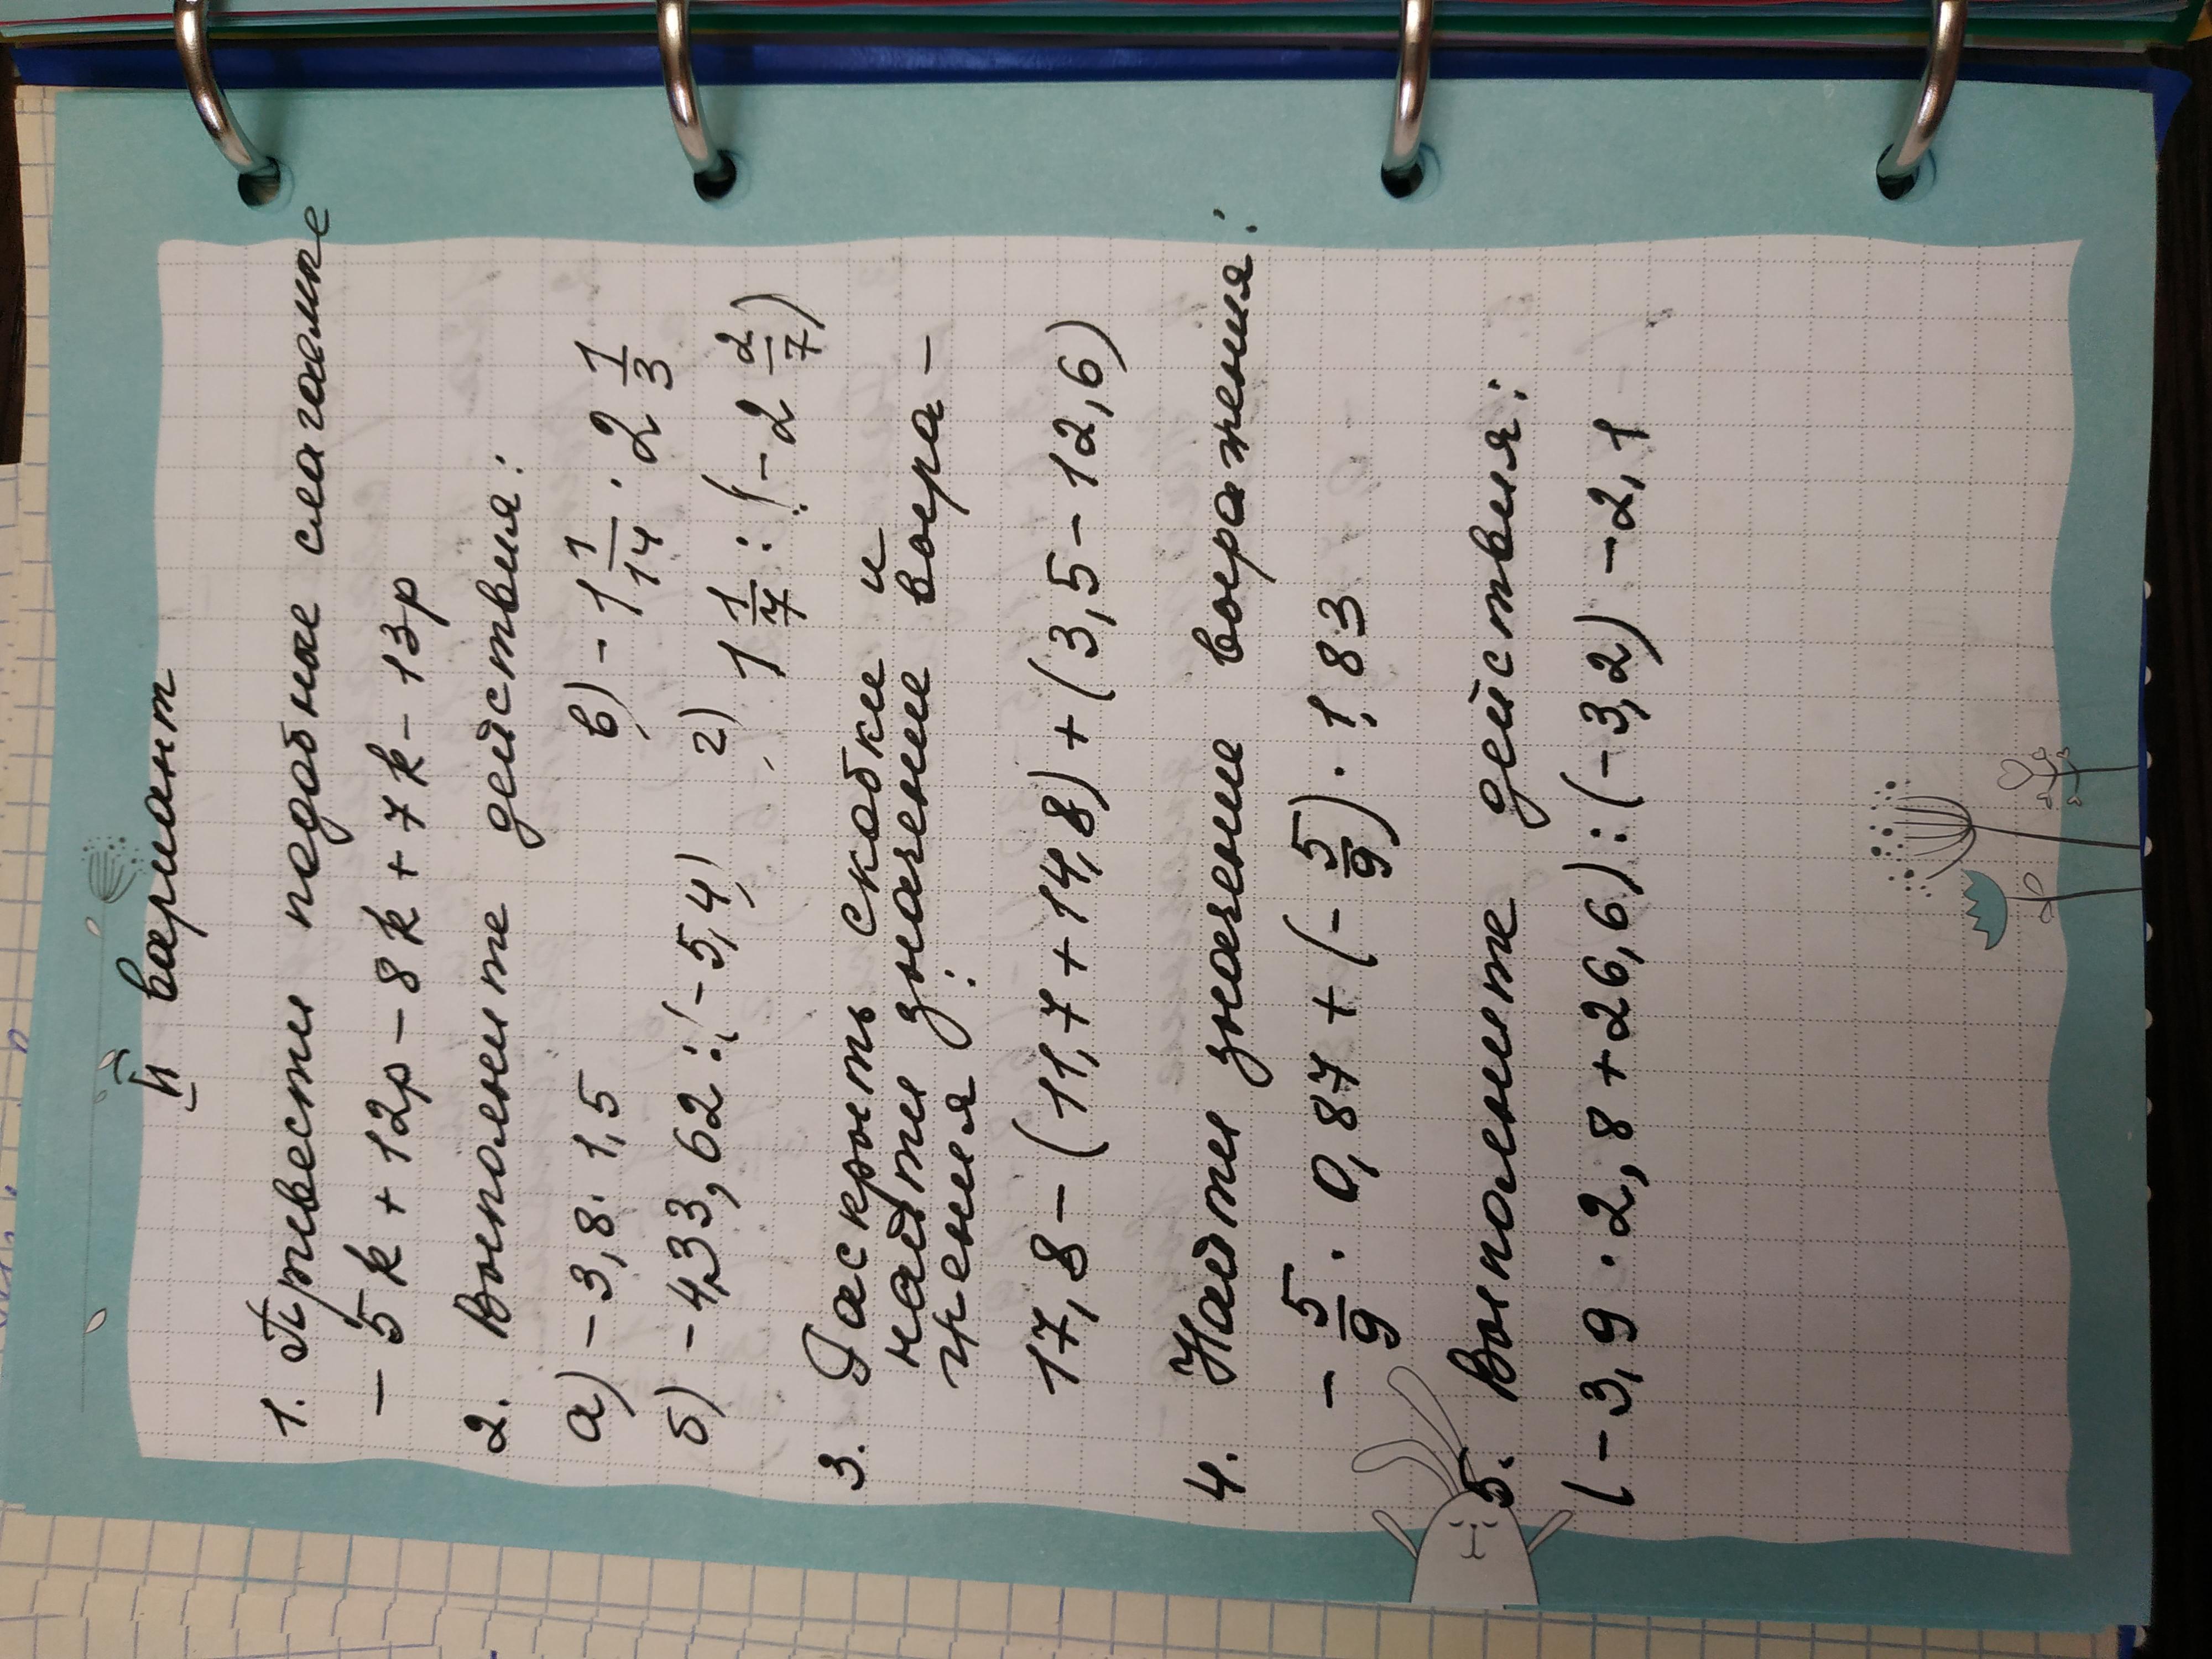 II вариант
1. Привести подобные слагаемые
- 5k + 12p - 8k + 7k - 13p
2. Выполните действия:
а) - 3,8 · 1,5 в) - 1 1/14 · 2 1/3
б) - 433,62 : (-5,4) г) 1 1/7 : (-2 2/7)
3. Раскрыть скобки и
найти значение выра-
жения :
17,8 - (11,7 + 14,8) + (3,5 - 12,6)
4. Найти значение выражения:
- 5/9 · 0,87 + (- 5/9) · 1,83
5. Выполните действия:
(- 3,9 · 2,8 + 26,6) : (-3,2) - 2,1